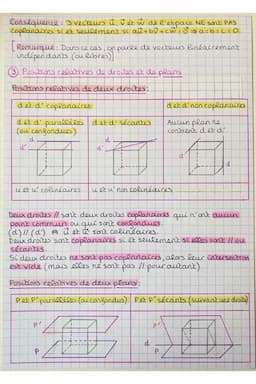 Conséquence : 3 vecteurs u⃗ v⃗ et w⃗ de l'espace NE sont PAS
coplanaires si et seulement si au⃗ + bv⃗ + cw⃗ = 0⃗ ⇒ a=b=c=0.
[Remarque : Dans ce cas, on parle de vecteurs linéairement
indépendants (ou libres)]
③ Positions relatives de droites et de plans
Positions relatives de deux droites :
d et d' coplanaires
d et d' non coplanaires
d et d' parallèles
(ou confondues)
d et d' sécantes
Aucun plan ne
contient d et d'
d
d'
d
d'
d
d'
u⃗ et u⃗' colinéaires
u⃗ et u⃗' non colinéaires
Deux droites // sont deux droites coplanaires qui n'ont aucun
point commun ou qui sont confondues.
(d) // (d') u⃗ et u⃗' sont colinéaires.
Deux droites sont coplanaires si et seulement si elles sont // ou
sécantes.
Si deux droites ne sont pas coplanaires, alors leur intersection
est vide (mais elles ne sont pas // pour autant)
Positions relatives de deux plans :
P et P' parallèles (ou confondus)
P et P' sécants (suivant une droite)
P'
P
P'
d
P